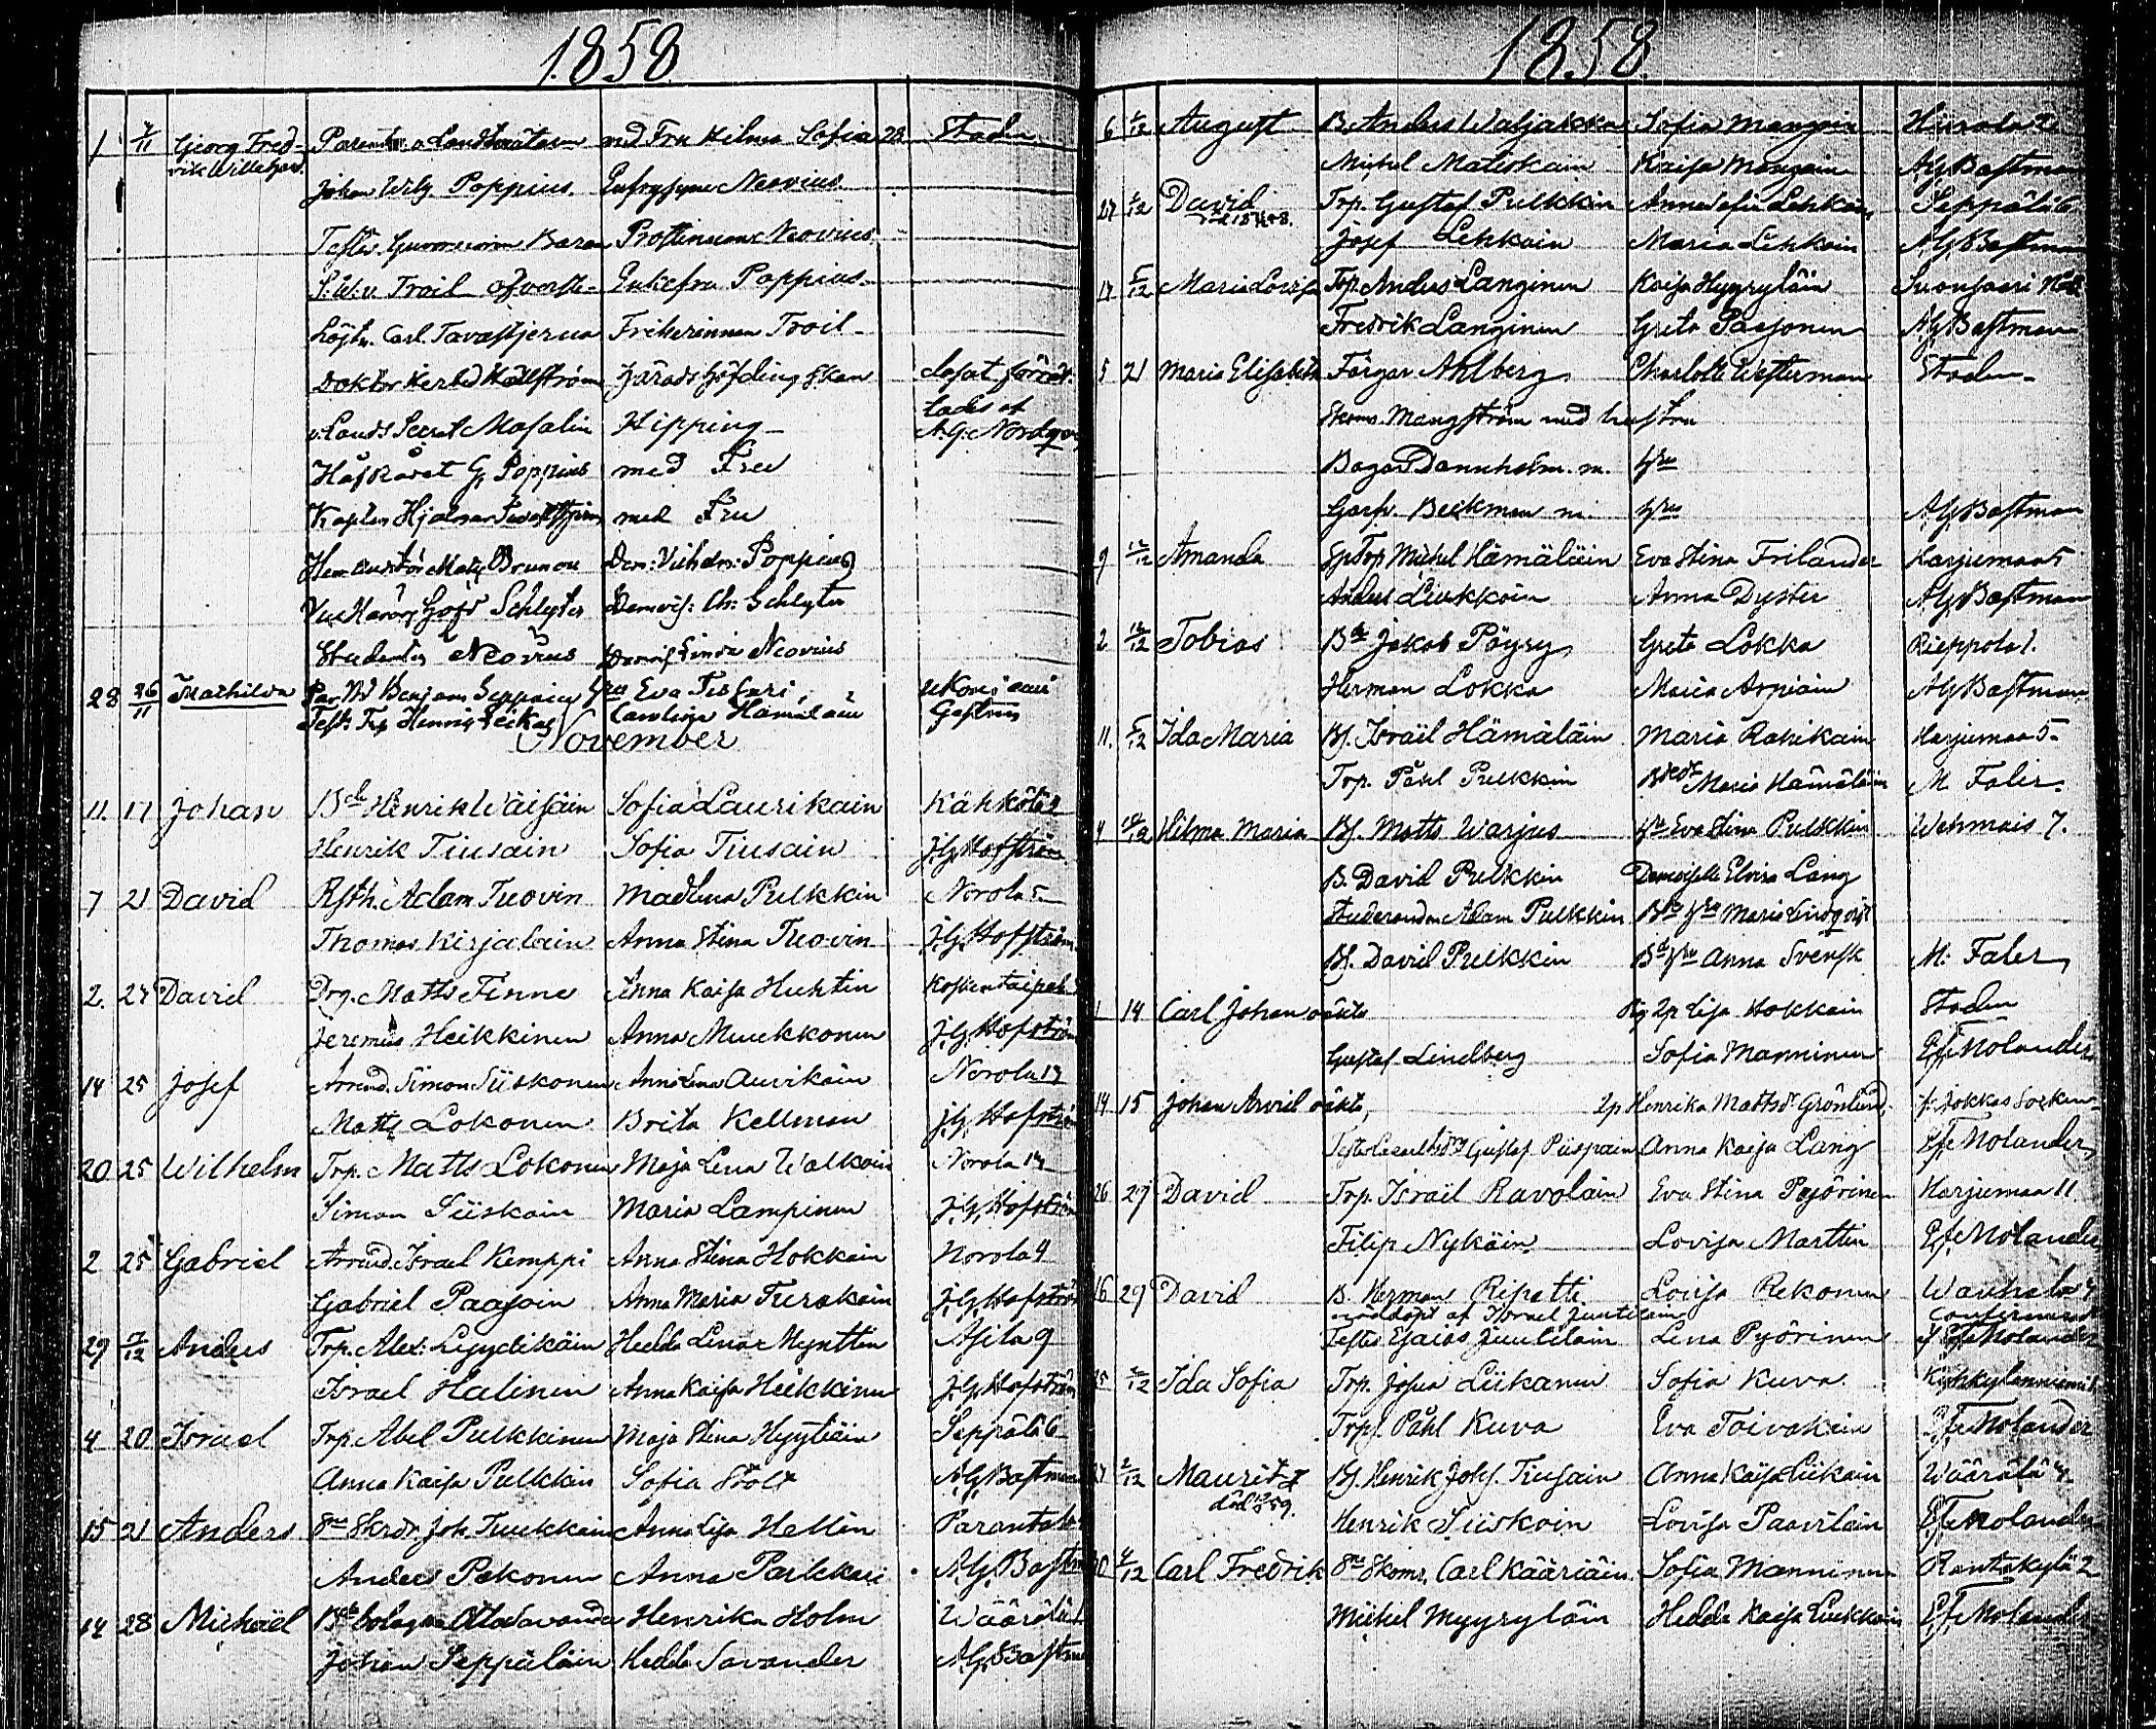 1858
1 7/11 Georg Fred- Parentes: Landtmätaren med Fru Hilma Sofia 28 Staden
rik Willehard.
Johan Wilh. Poppius. Eufrosyne Neovius
Testes. Guvernören Baron Prostinnan Neovius
S. W. v. Troil Enkefru Poppius
Löjtn. Carl Tavastjerna Friherinnan Troil
Doktor Herbd Hällström Häradshöfdingskan dopat förrät-
tades af
v. Lands Secret Masalin Hipping A. G. Nordqv
Håfrådet G. Poppius med Fru
Kapten Hjalmar Tavastjerna med Fru
Brunou Dem: Vilhelm: Poppius
Vice Häradshöfd Schlyter Demois: Ch: Schlyter
Studenten Neovius Demois Linda Neovius
28 26/11 Mathilda Par. Bd Benjam Seppäin Hu Eva Tiusari
Test: Trp Henrik Leikas Carolina Hämäläin
November
11. 17 Johan Bde Henrik Wäisäin Sofia Laurikain Kähkölä 2
Henrik Tiusain Sofia Tiusain J. G. Hofström
7 21 David Rsth. Adam Tuovin Madlena Pulkkin Norola 5
Thomas Kirjalain Anna Stina Tuovin J. G. Hofström
2. 24 David Drg. Matts Finne Anna Kaisa Huhtin Koskentaipale
Jeremias Heikkinen Anna Muukkonen J. G. Hofström
14 25 Josef Arrend. Simon Siiskonen Anna Lena Aurikain Norola 14
Matts Lokonen Brita Kellman J. G. Hofström
20 25 Wilhelm Trp. Matts Lokonen Maja Lena Walkoin Norola 14
Simon Siiskoin Maria Lampinen J. G. Hofström
2 25 Gabriel Arrend. Israel Kemppi Anna Stina Hokkain Norola 4
Gabriel Paasoin Anna Maria Turakain J. G. Hofström
29 1/12 Anders Trp. Alex: Lyydikäin Hedda Lena Mynttin Asila 9
Israel Halinen Anna Kaisa Heikkinen J. G. Hofström
4 20 Israel Trp. Abel Pulkkinen Maja Stina Hyytiäin Seppälä 6
Anna Kaisa Pulkkin Sofia Stolt A. G. Bastman
15 21 Anders Skrdr. Joh. Tuukkain Anna Lisa Hellin Parantala
Anders Pekonen Anna Parkkari A. G. Bastm
14 28 Michaël Savander Henrika Holm Wäärälä 1
Johan Seppäläin Hedda Savander A. G. Bastm
1858.
6 5/12 August B. Anders Waljakka Sofia Mangoin Hirvola 2
Michel Matiskain Kaisa Mangoin A. G. Bastman
27 1/12 David Trp. Gustaf Pulkkin Anna Sofia Lehkoin Seppälä 6
Josef Lehkoin Maria Lehkoin A. G. Bastman
17 5/12 Maria Lovisa Trp. Anders Langinen Kaisa Hyyryläin Suonsaari No
Fredrik Langinen Greta Paasonen A. G. Bastman
5 21 Maria Elisabeth Färgar Ahlberg Charlotta Westerman Staden
Skoms. Mangström med hustru
Bagar Dannholm. m. Hu
Garfv. Beckman m. Hu A. G. Bastman
9 12/12 Amanda Sptrp Michel Hämäläin Eva Stina Frilander Harjumaa 5
Anders Liukkoin Anna Dyster A. G. Bastman
2 12/12 Tobias Bde Jakob Pöyry Greta Lokka Rieppola 1.
Herman Lokka Maria Arpiain A. G. Bastman
11. 5/12 Ida Maria Bf. Israël Hämäläin Maria Rahikain Harjumaa 5
Trp. Påhl Pulkkin Maria Hämäläin M. Faler.
4 12/12 Hilma Maria Bf. Matts Warjus Hu Eva Stina Pulkkin Wehmais 7.
B. David Pulkkin Demoiselle Elvira Lang
Studeranden Adam Pulkkin Bd Hu Maria Lindqvist
Bf. David Pulkkin Bd Hu Anna Svensk M. Faler
1 14 Carl Johan oäkta Pig Lisa Hokkain Staden
Gustaf Lindberg Sofia Manninen P. F. Molander
14 15 Johan Arvid oäkta, Henrika Mattsdr Grönlund fr. Jokkas Socken
Testes Gustaf Piispain Anna Kaisa Lang P. F. Molander
26 27 David Trp. Israël Ravolain Eva Stina Pöjörinen Harjumaa 11
Filip Nykäin Lovisa Marttin P. F. Molander
16 29 David B. Herman Ripatti Lovisa Rekonen Wanhala 4
nöddöpt af Israel Juutilain confirmerat
Testes Esaias Juutilain Lena Pyörinen af P. F. Molander
25 2/12 Ida Sofia Trp. Josua Liikanen Sofia Kuva
Trp. Påhl Kuva Eva Toivakain P. F. Molander
27 2/12 Mauritz Bf. Henrik Johs. Tiusain Anna Kaisa Liikain Wäärälä 4
död
Henrik Siiskoin Lovisa Paavilain P. F. Molander
30 4/12 Carl Fredrik Skoms. Carl Kääriäin Sofia Manninen Rantakylä 2
Michel Myyryläin Hedda Kaisa Liukkoin P. F. Molander